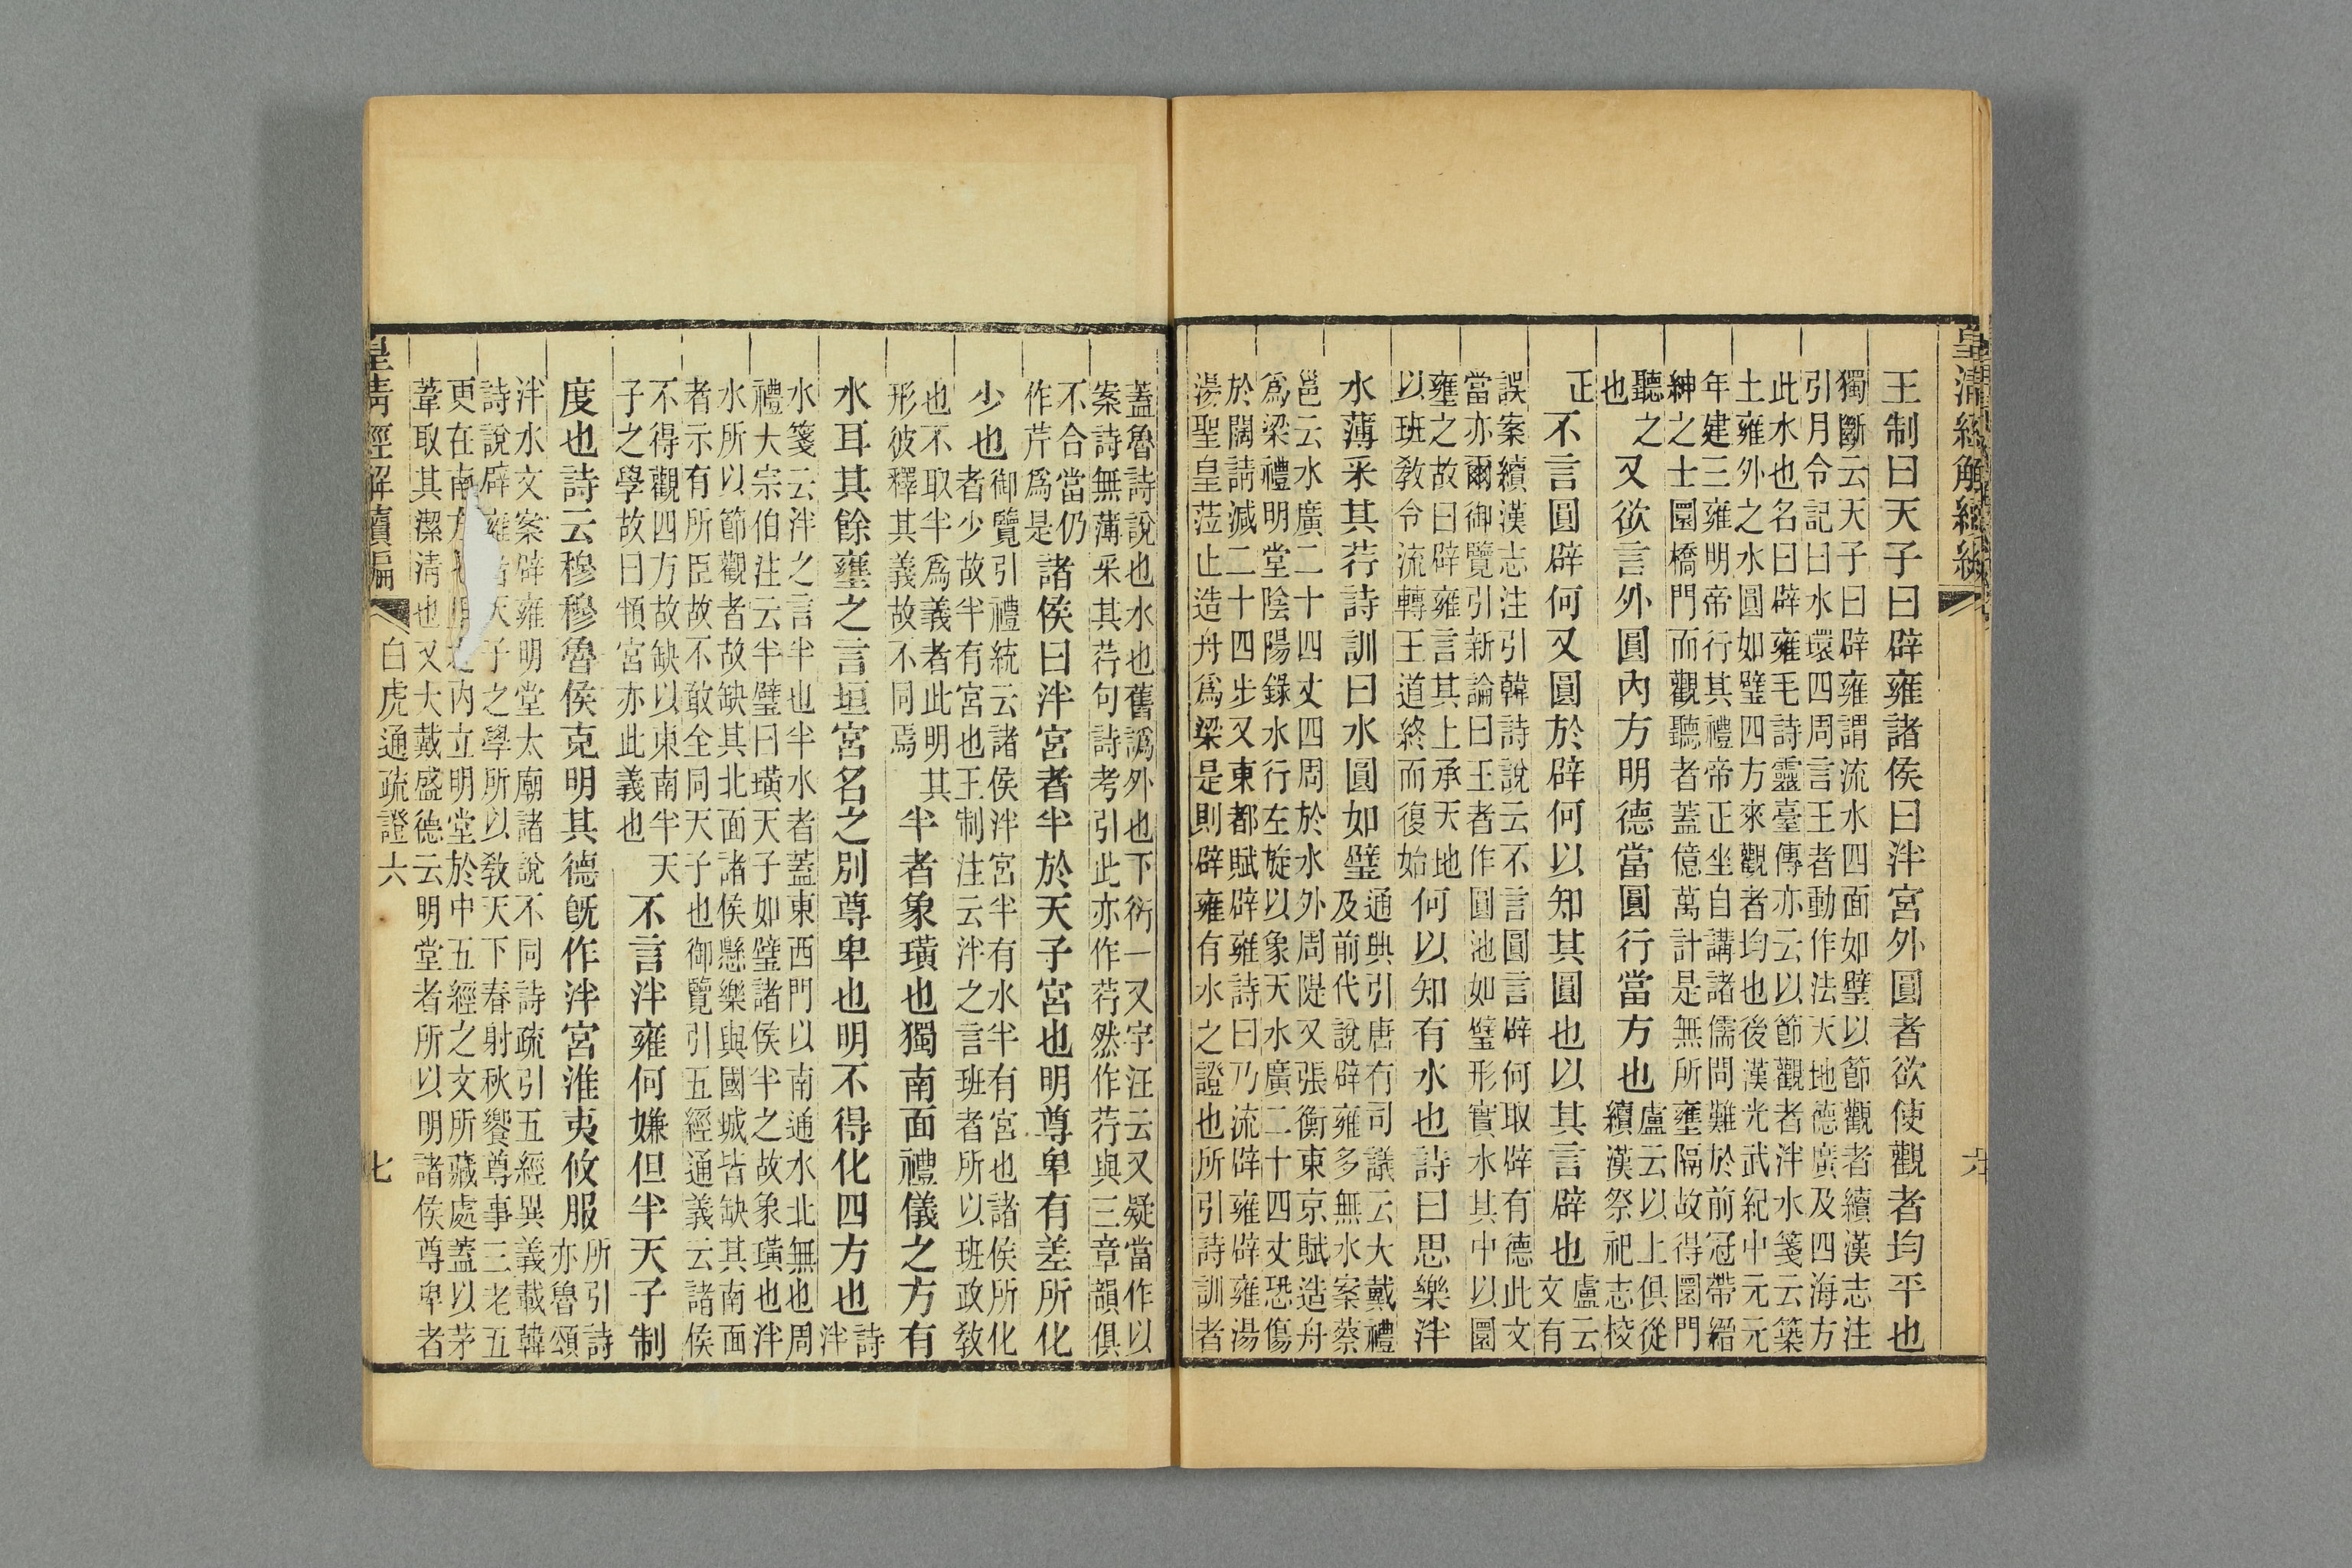 皇清經解續編
六
王制曰天子曰辟雍諸侯曰泮宮外圓者欲使觀者均平也
獨斷云天子曰辟雍謂流水四面如璧以節觀者續漢志注
引月令記曰水環四周言王者動作法天地德廣及四海方
此水也名曰辟雍毛詩靈臺傳亦云以節觀者泮水箋云築
土雍外之水圓如璧四方來觀者均也後漢光武紀中元元
年建三雍明帝行其禮帝正坐自講諸儒問難於前冠帶縉
紳之士圜橋門而觀聽者蓋億萬計是無所壅隔故得圜門
聽之
也
又欲言外圓內方明德當圓行當方也
盧云以上俱從
續漢祭祀志校
正
不言圓辟何又圓於辟何以知其圓也以其言辟也
盧云
文有
誤案續漢志注引韓詩說云不言圓言辟何取辟有德此文
當亦爾御覽引新論曰王者作圓池如璧形實水其中以圜
壅之故曰辟雍言其上承天地
以班教令流轉王道終而復始
何以知有水也詩曰思樂泮
水薄采其荇詩訓曰水圓如璧
通典引唐有司議云大戴禮
及前代說辟雍多無水案蔡
邕云水廣二十四丈四周於水外周隄又張衡東京賦造舟
爲梁禮明堂陰陽錄水行左旋以象天水廣二十四丈恐傷
於闊請減二十四步又東都賦辟雍詩曰乃流辟雍辟雍湯
湯聖皇蒞止造舟爲梁是則辟雍有水之證也所引詩訓者
蓋魯詩說也水也舊譌外也下衍一又字汪云又疑當作以
案詩無薄采其荇句詩考引此亦作荇然作荇與三章韻俱
不合當仍
作芹爲是
諸侯曰泮宮者半於天子宮也明尊卑有差所化
少也
御覽引禮統云諸侯泮宮半有水半有宮也諸侯所化
者少故半有宮也王制注云泮之言班者所以班政教
也不取半爲義者此明其
形彼釋其義故不同焉
半者象璜也獨南面禮儀之方有
水耳其餘壅之言垣宮名之別尊卑也明不得化四方也
詩
泮
水箋云泮之言半也半水者蓋東西門以南通水北無也周
禮大宗伯注云半璧曰璜天子如璧諸侯半之故象璜也泮
水所以節觀者故缺其北面諸侯懸樂與國城皆缺其南面
者示有所臣故不敢全同天子也御覽引五經通義云諸侯
不得觀四方故缺以東南半天
子之學故曰頖宮亦此義也
不言泮雍何嫌但半天子制
度也詩云穆穆魯侯克明其德旣作泮宮淮夷攸服
所引詩
亦魯頌
泮水文案辟雍明堂太廟諸說不同詩疏引五經異義載韓
詩說辟雍者天子之學所以教天下春射秋饗尊事三老五
更在南方內立明堂於中五經之文所藏處蓋以茅
葦取其潔清也又大戴盛德云明堂者所以明諸侯尊卑者
皇清經解續編
白虎通疏證六
七